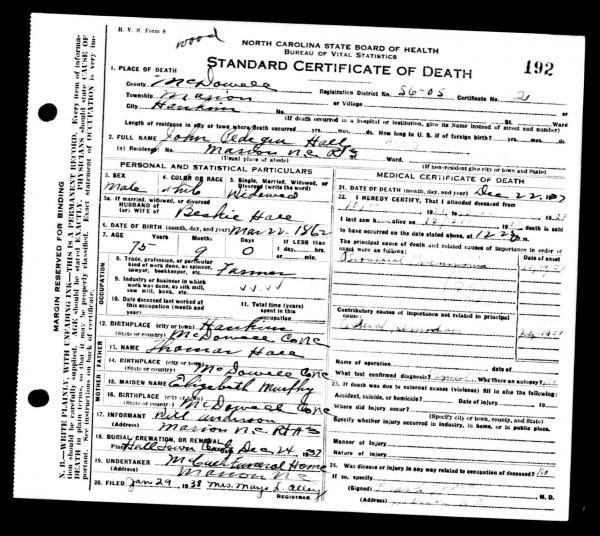 B. V. S. Form 8
wood
NORTH CAROLINA STATE BOARD OF HEALTH
BUREAU OF VITAL STATISTICS
STANDARD CERTIFICATE OF DEATH
192
1. PLACE OF DEATH
County McDowell
Registration District No. 56-05 Certificate No. 21
Township Marion or Village
City Hankins No. St. Ward
(If death occurred in a hospital or institution, give its Name instead of street and number)
Length of residence in city or town where death occurred yrs. mos. ds. How long in U. S. if of foreign birth? yrs. mos. ds.
2. FULL NAME John Hall
(a) Residence: No. Marion N.C. R#3
(Usual place of abode) (If non-resident give city or town and State)
PERSONAL AND STATISTICAL PARTICULARS
3. SEX male
4. COLOR OR RACE white
5. Single, Married, Widowed, or Divorced (write the word) Widowed
5a. If married, widowed, or divorced
HUSBAND of
(or) WIFE of Beskie Hall
6. DATE OF BIRTH (month, day, and year) Mar 22 1862
7. AGE Years 75 Months 9 Days 0 IF LESS than 1 day, hrs. or min.
OCCUPATION
8. Trade, profession, or particular kind of work done, as spinner, sawyer, bookkeeper, etc. Farmer
9. Industry or business in which work was done, as silk mill, saw mill, bank, etc. " "
10. Date deceased last worked at this occupation (month and year)
11. Total time (years) spent in this occupation
12. BIRTHPLACE (city or town) Hankins
(State or country) McDowell Co NC
FATHER
13. NAME Thomas Hall
14. BIRTHPLACE (city or town)
(State or country) McDowell Co NC
MOTHER
15. MAIDEN NAME Elizabeth Murphy
16. BIRTHPLACE (city or town)
(State or country) McDowell Co NC
17. INFORMANT Anderson
(Address) Marion N.C. R#3
18. BURIAL, CREMATION, OR REMOVAL
Place Halltown Date Dec 24, 1937
19. UNDERTAKER McCall Funeral Home
(Address) Marion NC
20. FILED Jan 29, 1938 Mrs. Mays L. Alley
REGISTRAR.
MEDICAL CERTIFICATE OF DEATH
21. DATE OF DEATH (month, day, and year) Dec 22, 1937
22. I HEREBY CERTIFY, That I attended deceased from
I last saw h alive on death is said
to have occurred on the date stated above, at 12 m.
The principal cause of death and related causes in importance in order of onset were as follows: Date of onset
Bronchial Pneumonia
Contributory causes of importance not related to principal cause:
Name of operation Date of
What test confirmed diagnosis? Was there an autopsy?
23. If death was due to external causes (violence) fill in also the following:
Accident, suicide, or homicide? Date of injury 19
Where did injury occur?
(Specify city or town, county, and State)
Specify whether injury occurred in industry, in home, or in public place.
Manner of Injury
Nature of Injury
24. Was disease or injury in any way related to occupation of deceased? No
If so, specify
(Signed) M. D.
(Address)
MARGIN RESERVED FOR BINDING
N. B.—WRITE PLAINLY, WITH UNFADING INK—THIS IS A PERMANENT RECORD. Every item of information should be carefully supplied. AGE should be stated EXACTLY. PHYSICIANS should state CAUSE OF DEATH in plain terms, so that it may be properly classified. Exact statement of OCCUPATION is very important. See instructions on back of certificate.